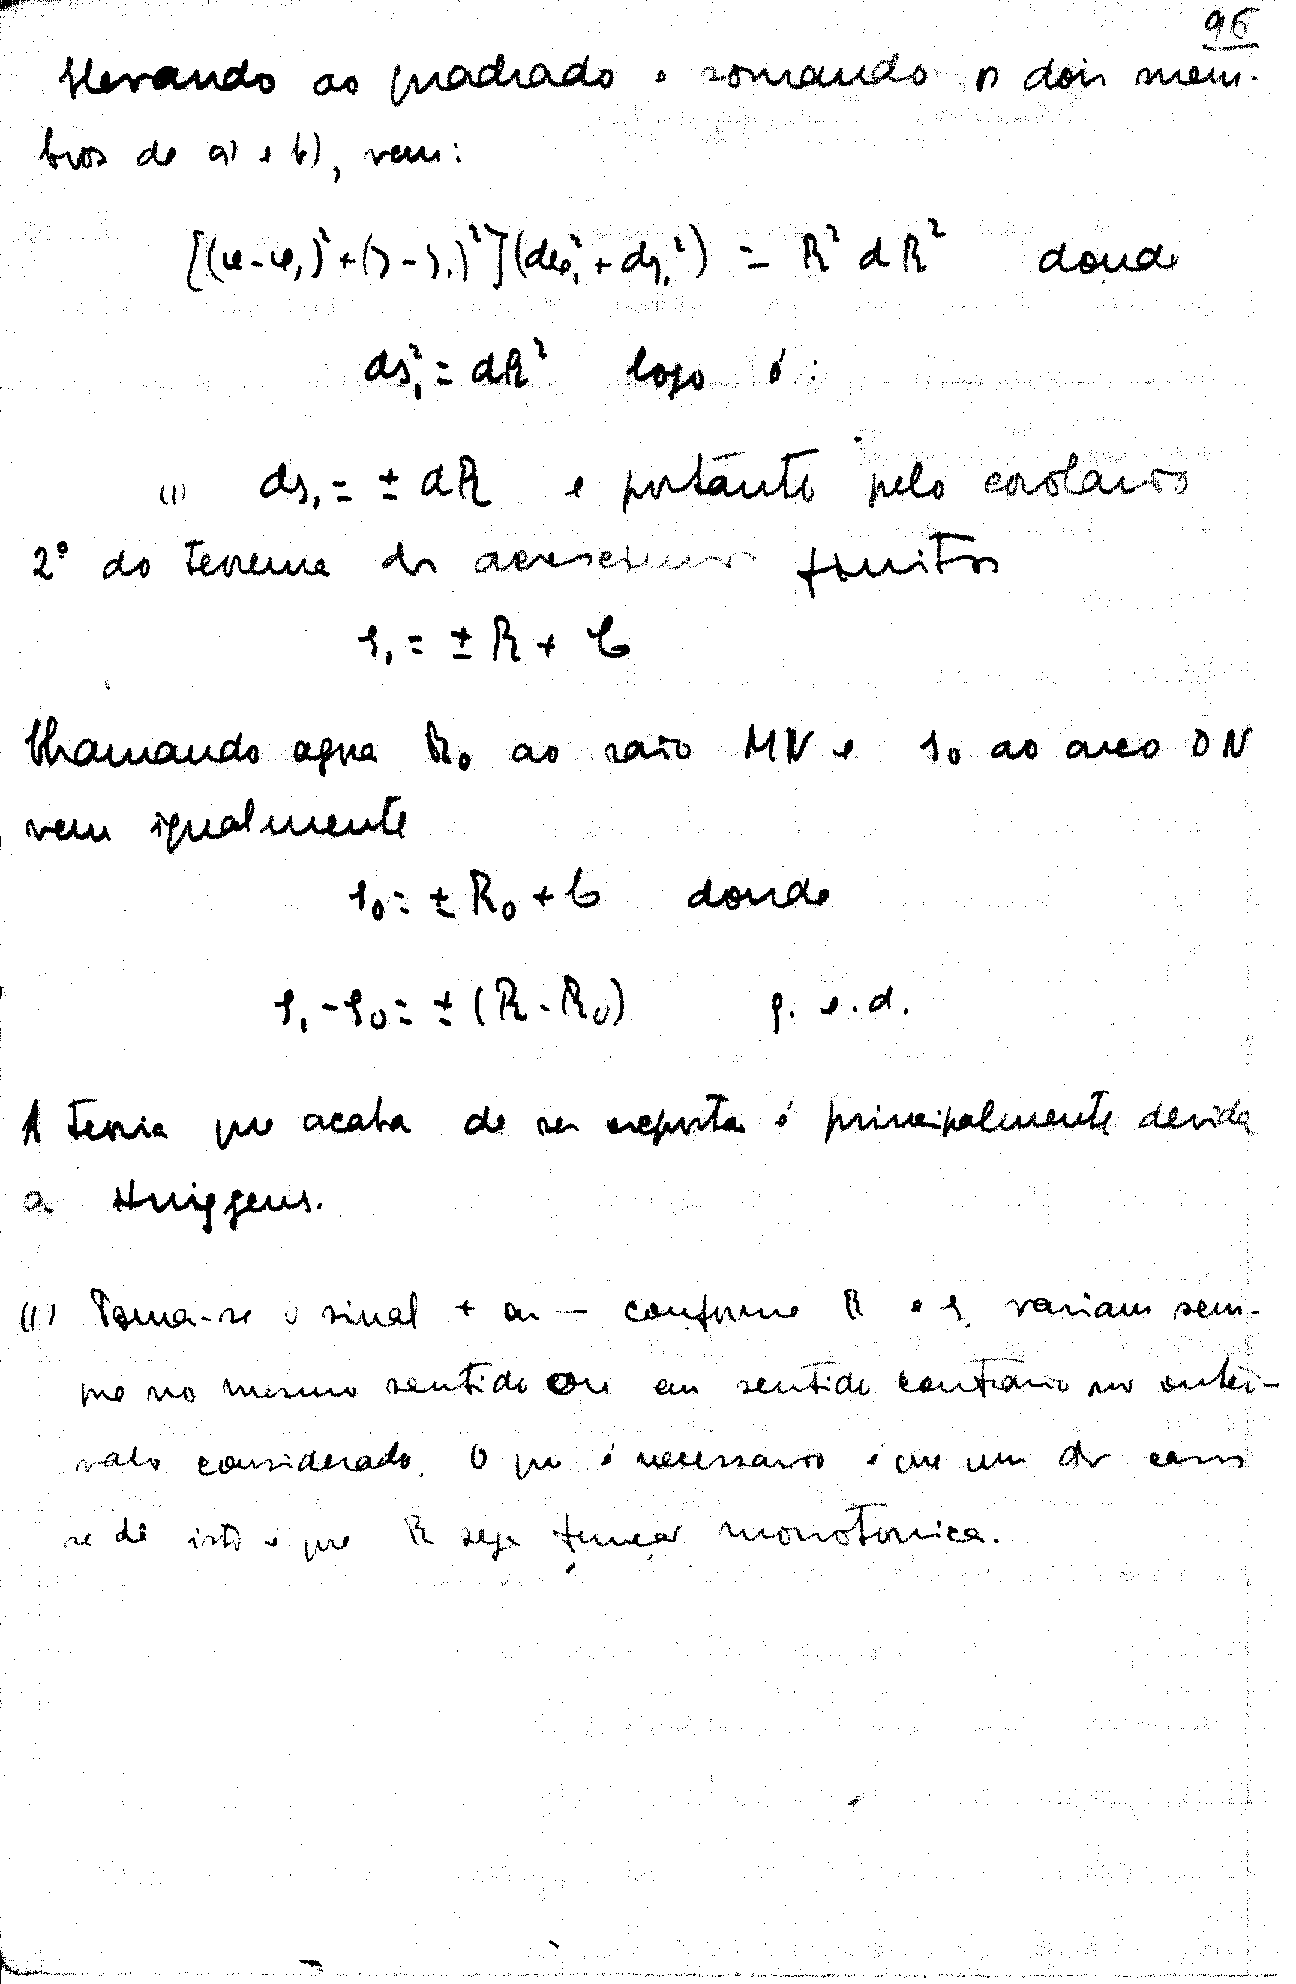 96
Elevando ao quadrado e somando os dois mem-
bros de a) e b), vem:
[(x-x₁)²+(y-y₁)²](dx₁²+dy₁²) = R² dR² donde
ds₁² = dR² logo é:
(1) ds₁ = ± dR e portanto pelo corolario
2º do teorema dos acrescimos finitos
s₁ = ± R + C
Chamando agora R₀ ao raio MN e s₀ ao arco DN
vem igualmente
s₀ = ± R₀ + C donde
s₁ - s₀ = ± (R - R₀) q. e. d.
A teoria que acaba de ser exposta é principalmente devida
a Huiggens.
(1) Toma-se o sinal + ou — conforme R e s₁ variam sem-
pre no mesmo sentido ou em sentido contrario no inter-
valo considerado. O que é necessario é que um dos casos
se dê isto é que R seja função monotonica.